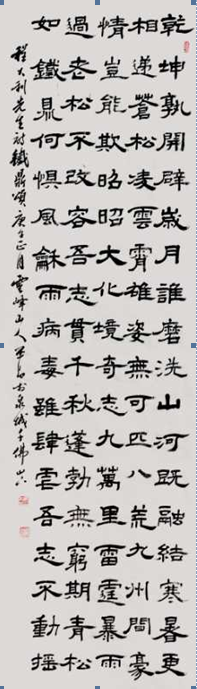 乾坤孰開闢歲月誰磨洗山河既融結寒暑更
相遞蒼松凌雲霄雄姿無可匹八荒九州間豪
情豈能欺昭昭大化境奇志九萬里雷霆暴雨
過老松不改容吾志貫千秋蓬勃無窮期青松
如鐵鼎何懼風龢雨病毒雖肆虐吾志不動摇
程大利先生詩鐵鼎頌庚子正月雲峰山人書於泉城千佛山